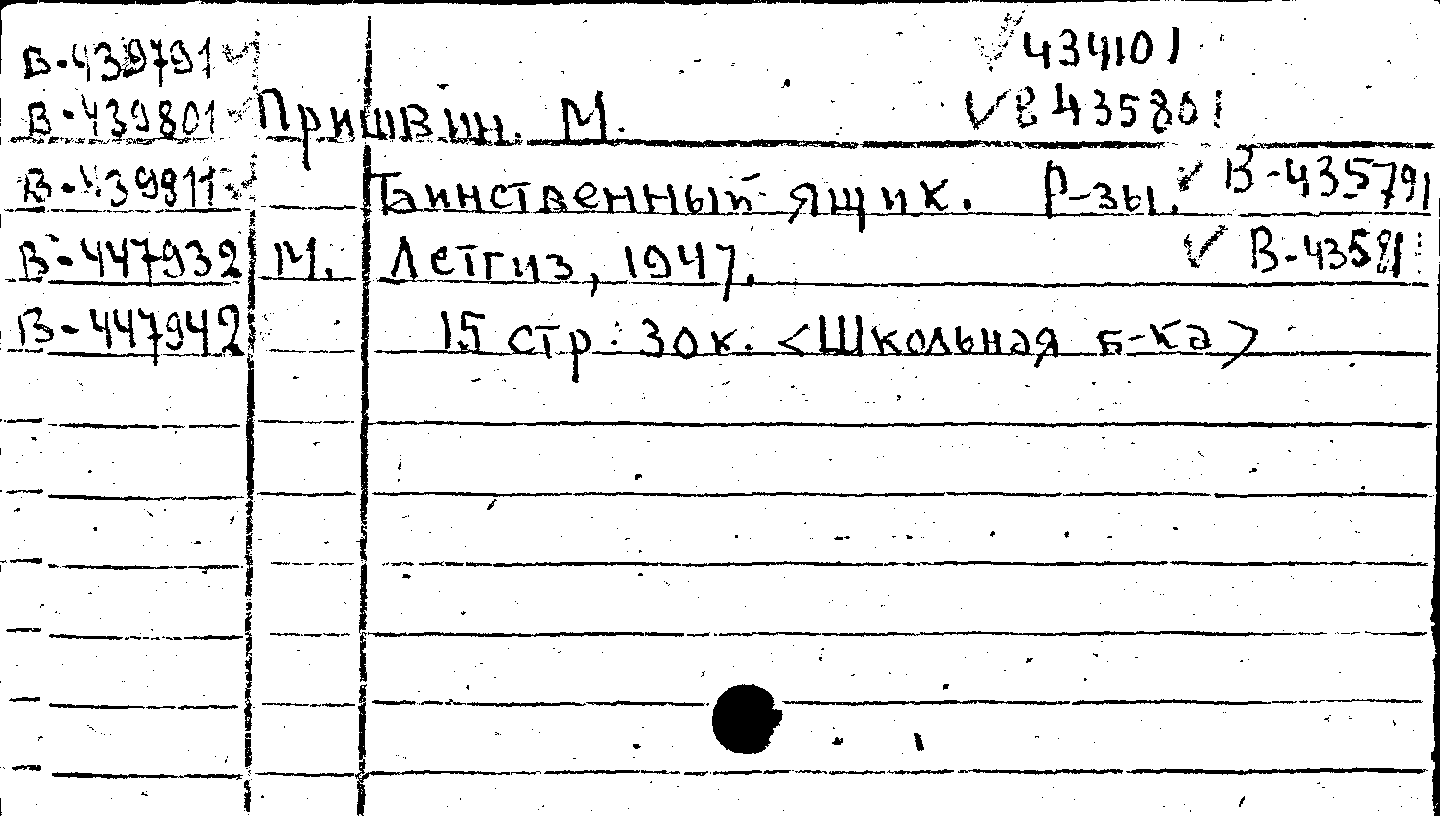 В-439791 ✓ ✓ 434101
В-439801 ✓ Пришвин. М. ✓ В 435801
В-439811 ✓ Таинственный ящик. Р-зы. ✓ В-435791
В-447932 М. Летгиз, 1947. ✓
В-447942 15 стр. 30 к. <Школьная б-ка>